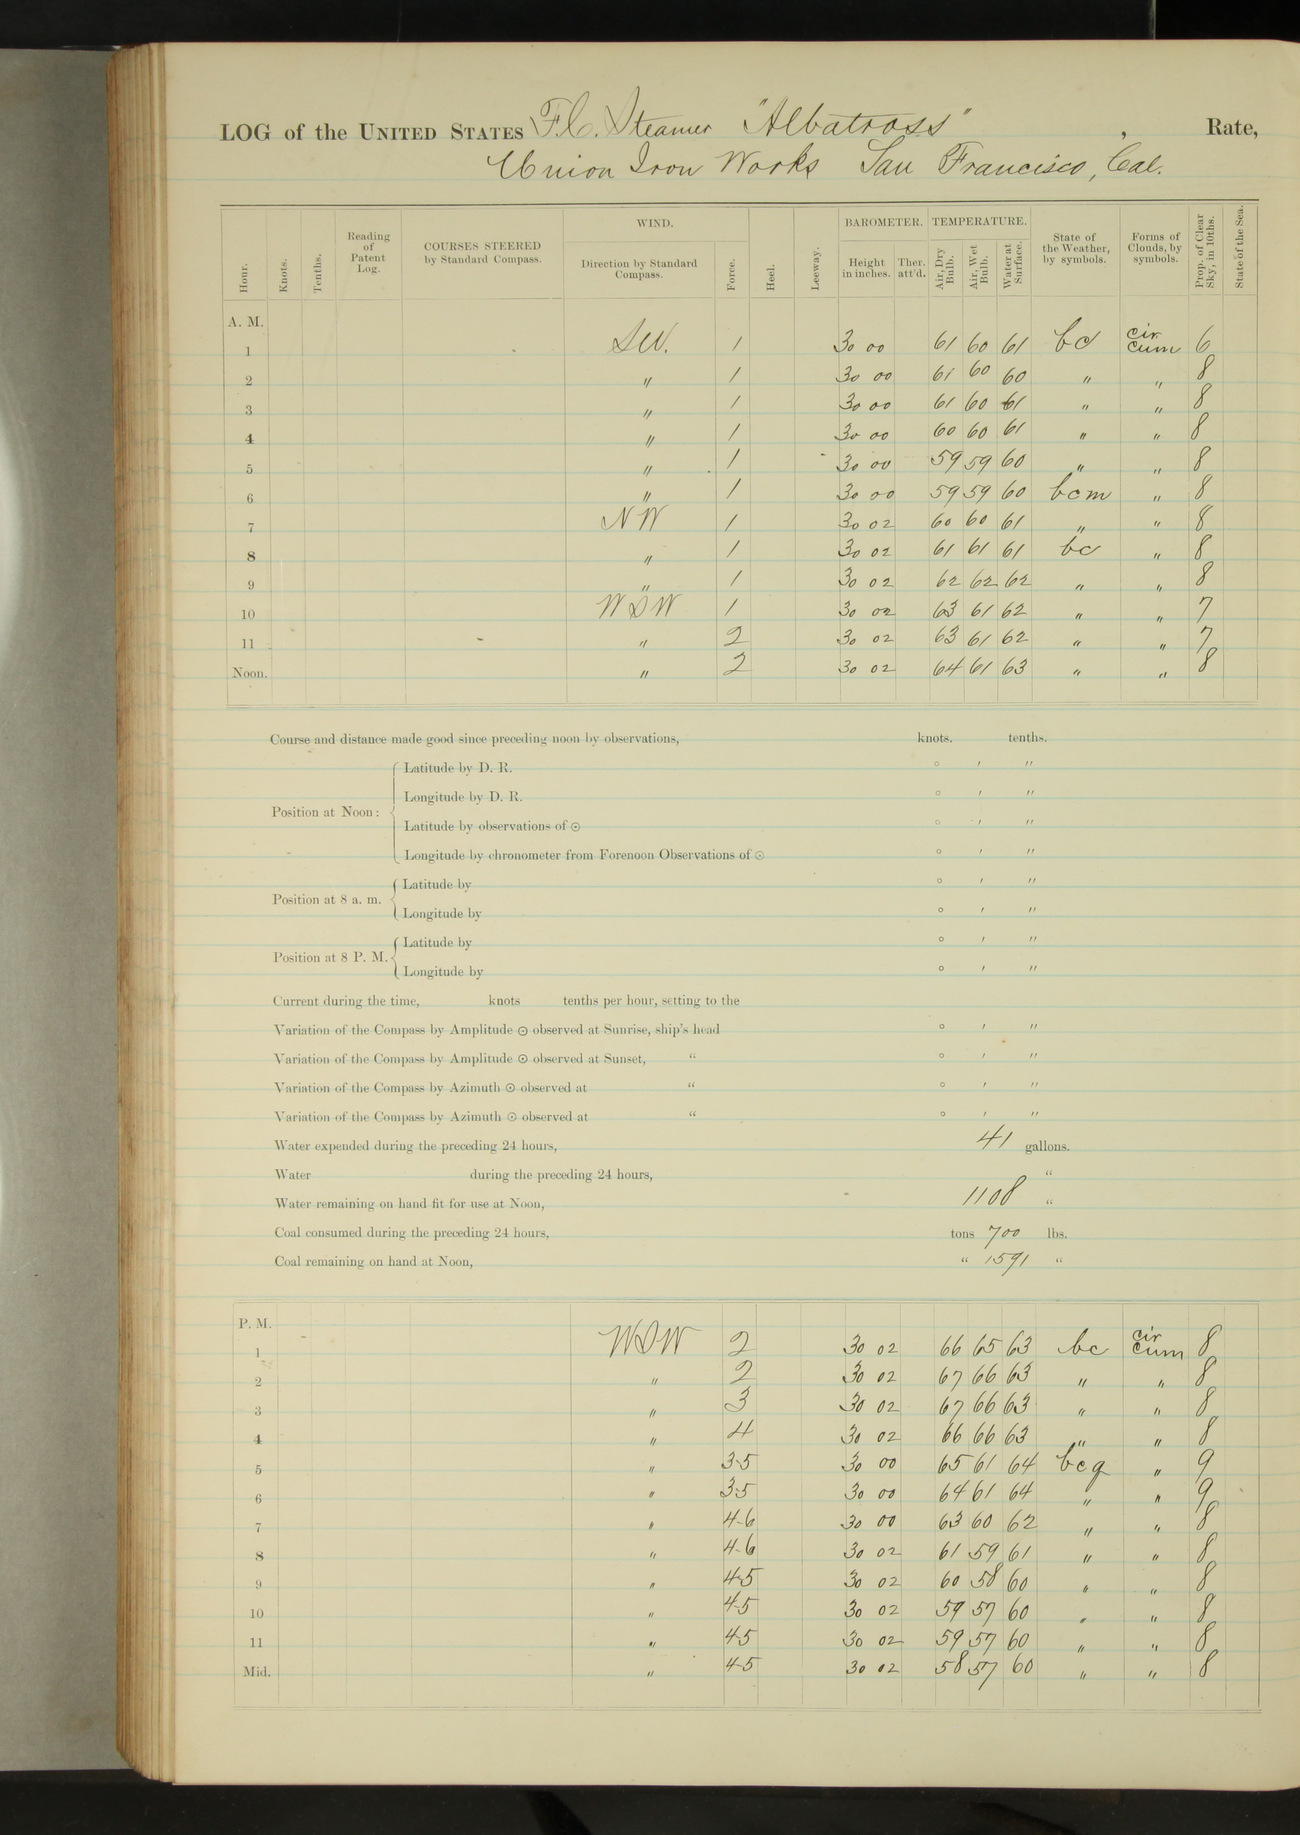 LOG of the UNITED STATES F.C. Steamer "Albatross" , Rate,
Union Iron Works San Francisco, Cal.
Hour. Knots. Tenths. Reading of Patent Log. COURSES STEERED by Standard Compass. WIND. Direction by Standard Compass. Force. Heel. Leeway. BAROMETER. Height in inches. Ther. att'd. TEMPERATURE. Air, Dry Bulb. Air, Wet Bulb. Water at Surface. State of the Weather, by symbols. Forms of Clouds, by symbols. Prop. of Clear Sky, in 10ths. State of the Sea.
A. M.
1 SW. 1 30 00 61 60 61 bc cir cum 6
2 " 1 30 00 61 60 60 " " 8
3 " 1 30 00 61 60 61 " " 8
4 " 1 30 00 60 60 61 " " 8
5 " 1 30 00 59 59 60 " " 8
6 " 1 30 00 59 59 60 bcm " 8
7 NW 1 30 02 60 60 61 " " 8
8 " 1 30 02 61 61 61 bc " 8
9 " 1 30 02 62 62 62 " " 8
10 WSW 1 30 02 63 61 62 " " 7
11 " 2 30 02 63 61 62 " " 7
Noon. " 2 30 02 64 61 63 " " 8
Course and distance made good since preceding noon by observations, knots. tenths.
Position at Noon: Latitude by D. R. ° ′ ″
Longitude by D. R. ° ′ ″
Latitude by observations of ⊙ ° ′ ″
Longitude by chronometer from Forenoon Observations of ⊙ ° ′ ″
Position at 8 a. m. Latitude by ° ′ ″
Longitude by ° ′ ″
Position at 8 P. M. Latitude by ° ′ ″
Longitude by ° ′ ″
Current during the time, knots tenths per hour, setting to the
Variation of the Compass by Amplitude ⊙ observed at Sunrise, ship's head ° ′ ″
Variation of the Compass by Amplitude ⊙ observed at Sunset, " ° ′ ″
Variation of the Compass by Azimuth ⊙ observed at " ° ′ ″
Variation of the Compass by Azimuth ⊙ observed at " ° ′ ″
Water expended during the preceding 24 hours, 41 gallons.
Water during the preceding 24 hours, "
Water remaining on hand fit for use at Noon, 1108 "
Coal consumed during the preceding 24 hours, tons 700 lbs.
Coal remaining on hand at Noon, " 1591 "
P. M.
1 WSW 2 30 02 66 65 63 bc cir cum 8
2 " 2 30 02 67 66 63 " " 8
3 " 3 30 02 67 66 63 " " 8
4 " 4 30 02 66 66 63 " " 8
5 " 3-5 30 00 65 61 64 bcq " 9
6 " 3-5 30 00 64 61 64 " " 9
7 " 4-6 30 00 63 60 62 " " 8
8 " 4-6 30 02 61 59 61 " " 8
9 " 4-5 30 02 60 58 60 " " 8
10 " 4-5 30 02 59 57 60 " " 8
11 " 4-5 30 02 59 57 60 " " 8
Mid. " 4-5 30 02 58 57 60 " " 8